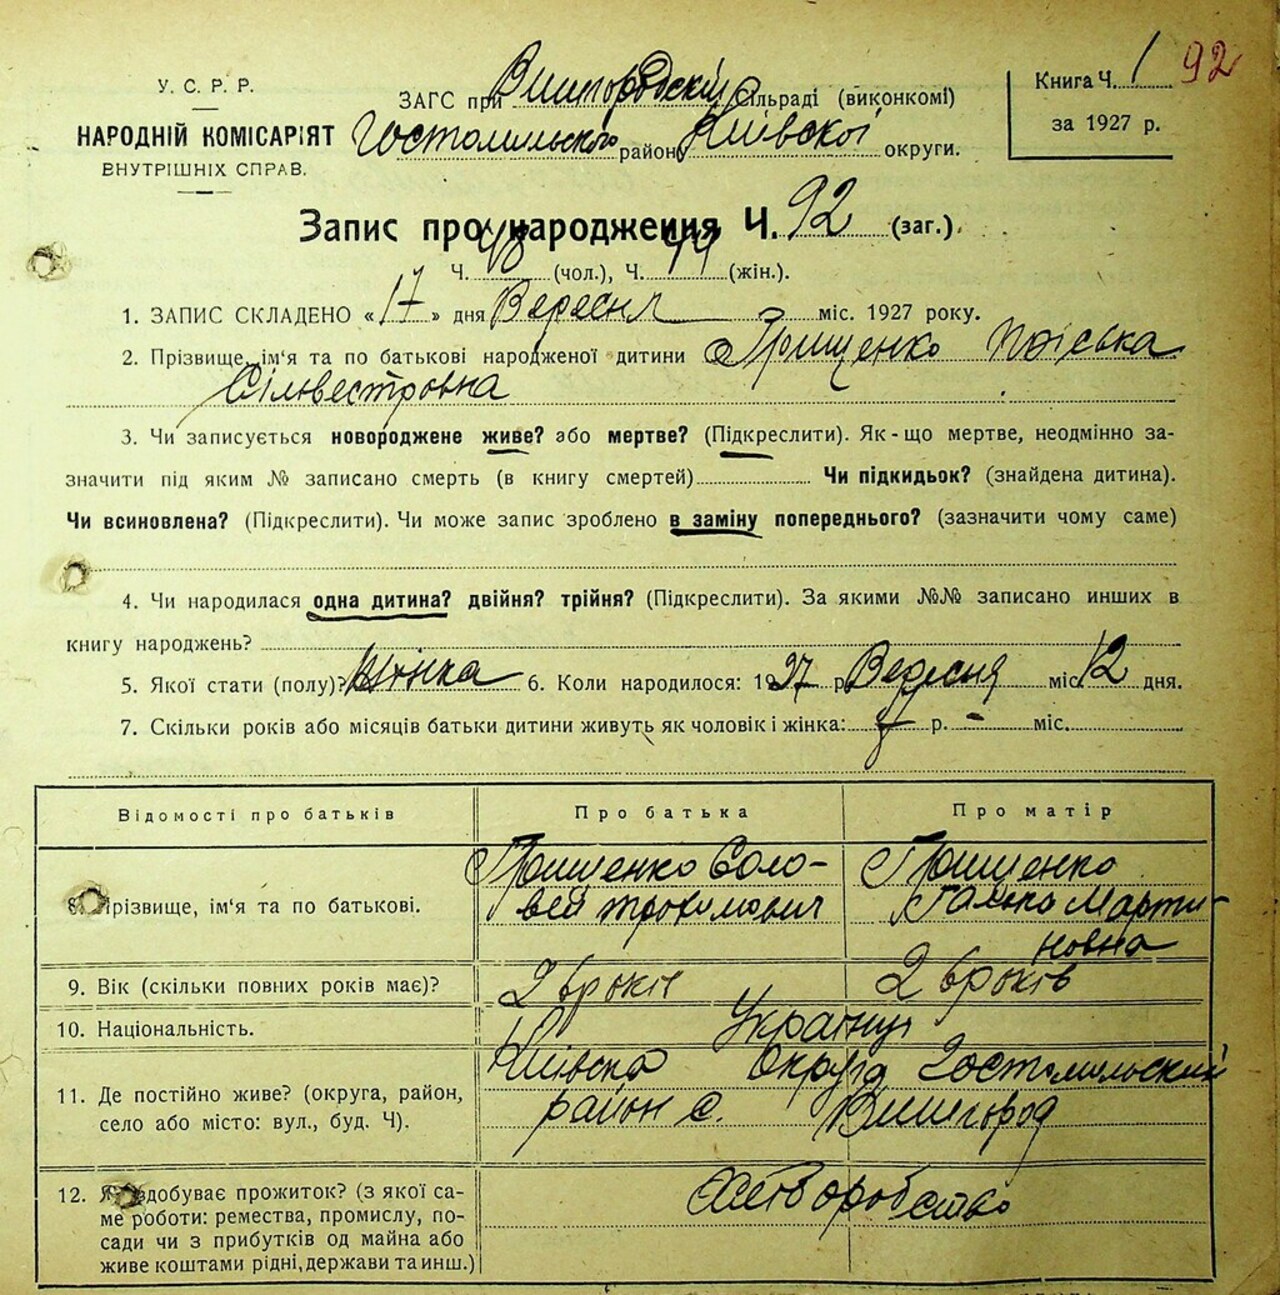 У. С. Р. Р.
НАРОДНІЙ КОМІСАРІЯТ
ВНУТРІШНІХ СПРАВ.
ЗАГС при Вишгородскій Сільраді (виконкомі)
Гостомильського району Київскої округи.
Книга Ч. 1 92
за 1927 р.
Запис про народження Ч. 92 (заг.).
Ч. 48 (чол.), Ч. 44 (жін.).
1. ЗАПИС СКЛАДЕНО « 17 » дня Вересня міс. 1927 року.
2. Прізвище, ім'я та по батькові народженої дитини Грищенко
Сільвестровна
3. Чи записується новороджене живе? або мертве? (Підкреслити). Як-що мертве, неодмінно за-
значити під яким № записано смерть (в книгу смертей) Чи підкидьок? (знайдена дитина).
Чи всиновлена? (Підкреслити). Чи може запис зроблено в заміну попереднього? (зазначити чому саме)
4. Чи народилася одна дитина? двійня? трійня? (Підкреслити). За якими №№ записано инших в
книгу народжень?
5. Якої стати (полу)? жінка 6. Коли народилося: 1927 р. Вересня міс. 12 дня.
7. Скільки років або місяців батьки дитини живуть як чоловік і жінка: р. - міс.
Відомості про батьків
Про батька
Про матір
8. Прізвище, ім'я та по батькові.
Грищенко Соло-
вей Трохимович
Грищенко
Галька Марти-
новна
9. Вік (скільки повних років має)?
26 років
26 років
10. Національність.
Українці
11. Де постійно живе? (округа, район,
село або місто: вул., буд. Ч).
Київска Округа Гостомильский
район с. Вишгород
12. Як здобуває прожиток? (з якої са-
ме роботи: ремества, промислу, по-
сади чи з прибутків од майна або
живе коштами рідні, держави та инш.)
Хліборобство